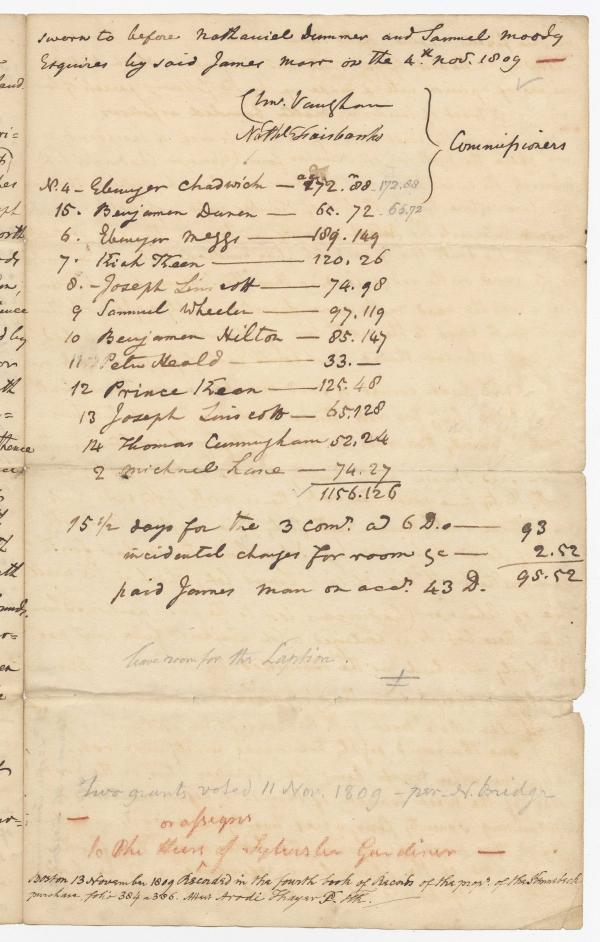 sworn to before Nathaniel Dummer and Samuel Moody
Esquires by said James Marr on the 4th Nov. 1809 —
Chs. Vaughan
Nathl Fairbanks
Commissioners
N. 4 - Ebenezer Chadwick — 172. 88 172.88
15. Benjamen Duren — 65. 72 65.72
6. Ebenezer Meggs — 189. 149
7. Kiah Keen — 120. 26
8. - Joseph Linscott — 74. 98
9 Samuel Wheeler — 97. 119
10 Benjamen Hilton — 85. 147
11 Peter Heald — 33. —
12 Prince Keen — 125. 48
13 Joseph Linscott — 65.128
14 Thomas Cunnugham 52. 24
2 Michael Lane — 74. 27
1156.126
15 1/2 days for the 3 Comrs. a 6 D. — 93
incidental charges for room &c — 2.52
95.52
paid James Marr on acct. 43 D.
leave room for the Caption.
Two grants voted 11 Nov. 1809 - per N. Bridge
or assigns
— to the Heirs of Sylvester Gardiner —
Boston 13 November 1809 Recorded in the fourth book of Records of the proprs. of the Kennebeck
purchase folio 384 a 386. Attest Arodi Thayer